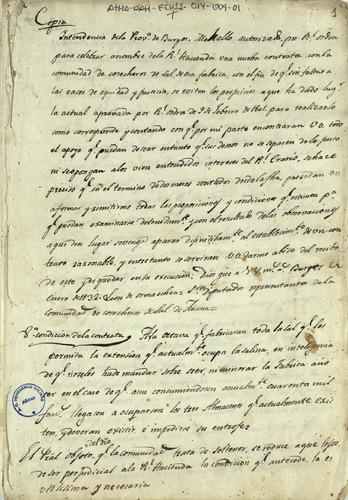 ATHA-DAH-FCUII-014-009-01
Copia
1
Intendencia de la Provª de Burgos. Me hallo autorizado por Rl orden
para celebrar a nombre de la Rl Hacienda una nueva contrata con la
comunidad de cosecheros de sal de esa fabrica, con el fin de q.e sin faltar a
las vases de equidad y justicia, se eviten los perjuicios a que ha dado lugar
la actual aprovada por Rl orden de 9 de Febrero de 1801. para realizarlo
como corresponde y contando con q.e por mi parte encontraran V.s todo
el apoyo q.e puedan desear entanto q.e sus deseos no se separen de lo justo
ni se opongan a los vien entendidos intereses del Rl Erario, se hace
preciso q.e en el termino de dos meses contados desde la fha, procedan V.s
a formar y remitirme todas las proposiciones y condiciones q.e estimen p.a
q.e puedan examinarse detenidam.te y con el resultado de las observaciones
a que den lugar se venga a parar difinitibam.te al establecim.to de un con
trato razonable, y entretanto se serviran V.s darme abiso del recibo
de este y de quedar en su execucion. Dios gue a V.s m.s a.s Burgos 22
Enero de 1832. Leon de ormaechea S.res Diputados representantes de la
Comunidad de cosecheros de sal de Añana
8.ª condicion de la contrata A la octava q.e fabricaran toda la sal q.e les
permita la extension q.e actualm.te ocupa la salina, en inteligencia
de q.e no se les trade mandar sobre seer, ni minorar la Fabrica a no
ser en el caso de q.e aun consumiendose anualm.te cuarenta mil
fan.s llegasen a ocuparse los tres Almacenes q.e actualmente exis
ten, y devoran existir e impedirse su entrofe
El Pral objeto, q.e la comunidad trata de sostener, se reduce a que lejos
de ser perjudicial a la Rl Hacienda la condicion q.e antecede, la es
utilisima y necesaria
AÑANA